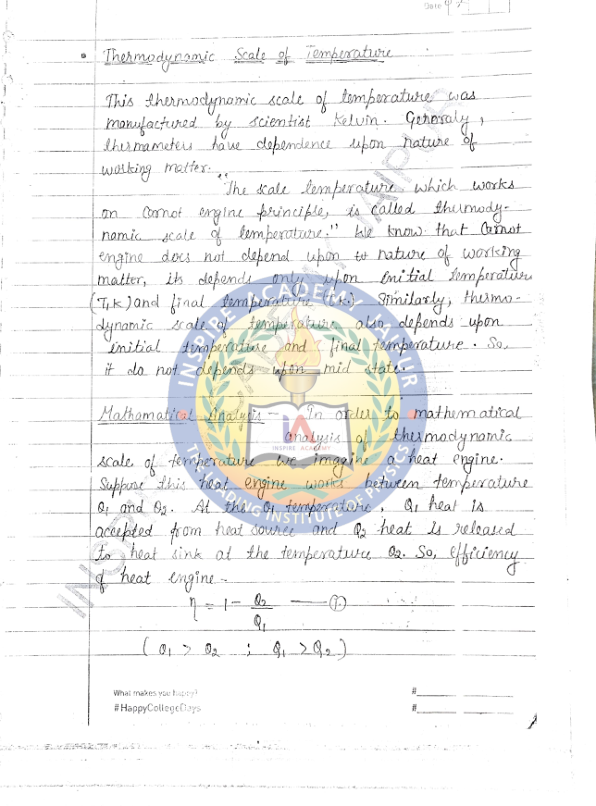 Date
Thermodynamic Scale of Temperature
This thermodynamic scale of temperature was
manufactured by scientist Kelvin. Generaly,
thermameters have dependence upon nature of
working matter.
"The scale temperature which works
on Carnot engine principle, is called thermody-
namic scale of temperature." We know that Carnot
engine does not depend upon to nature of working
matter, its depends only upon initial temperature
(T,K) and final temperature Similarly, thermo-
dynamic scale of temperature also depends upon
initial temperature and final temperature. So,
it do not depends upon mid state.
Mathamatical Analysis - In order to mathematical
analysis of thermodynamic
scale of temperature we imagine heat engine.
Suppose this heat engine works between temperature
θ1 and θ2. At the θ1 temperature, Q1 heat is
accepted from heat source and Q2 heat is released
to heat sink at the temperature θ2. So, efficiency
of heat engine -
η = 1 - Q2/Q1 — ①
(θ1 > θ2 ; Q1 > Q2)
What makes you happy?
#HappyCollegeDays
#
#
INSPIRE ACADEMY JAIPUR
IA
INSPIRE ACADEMY
THE LEADING INSTITUTE OF PHYSICS
INSPIRE ACADEMY JAIPUR